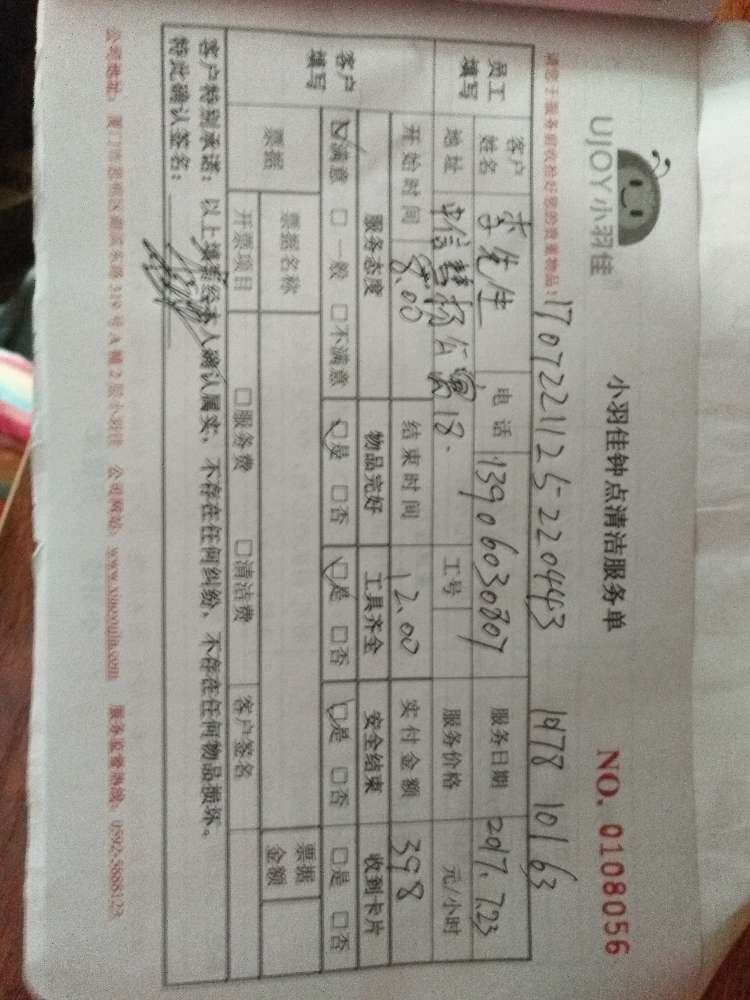 UJOY小羽佳
小羽佳钟点清洁服务单
NO. 0108056
请您于服务前收拾好您的贵重物品!
1707221125-220443 1978 10163
员工填写 客户姓名 李先生 电话 13906030807 服务日期 2017.7.23
地址 18. 工号 服务价格 元/小时
开始时间 8.00 结束时间 12.00 实付金额 398
客户填写 服务态度 物品完好 工具齐全 安全结束 收到卡片
☑满意 □一般 □不满意 ☑是 □否 ☑是 □否 ☑是 □否 □是 □否
票据 票据名称 票据金额
开票项目 □服务费 □清洁费 客户签名
客户特别承诺:以上填写经本人确认属实,不存在任何纠纷,不存在任何物品损坏。
特此确认签名:
公司地址: 厦门市思明区湖滨东路319号A幢2层小羽佳 公司网站: www.xiaoyujia.com 服务监督热线: 0592-5888123